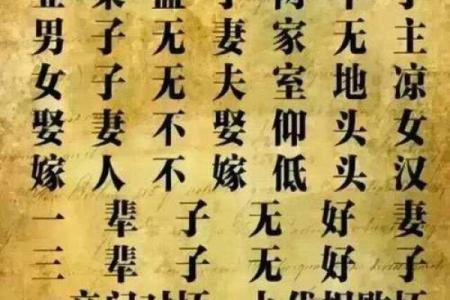 男子无妻家无主
女子无夫室地凉
娶妻不娶仰头女
嫁人不嫁低头汉
一辈子无好妻
三辈子无好子